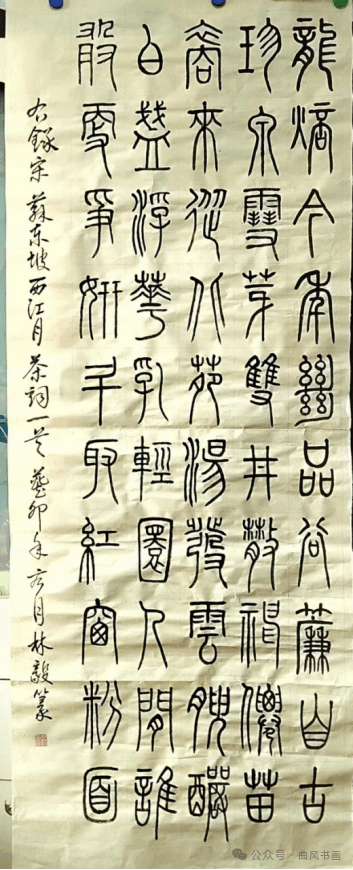 龍焙今年絕品谷簾自古
珍泉雪芽雙井散神僊苗
裔來從北苑湯發雲腴釅
白盞浮華乳輕圓人間誰
敢更爭妍斗取紅窗粉面
右録宋蘇東坡西江月茶詞一首癸卯年六月林毅篆
公众号·曲风书画